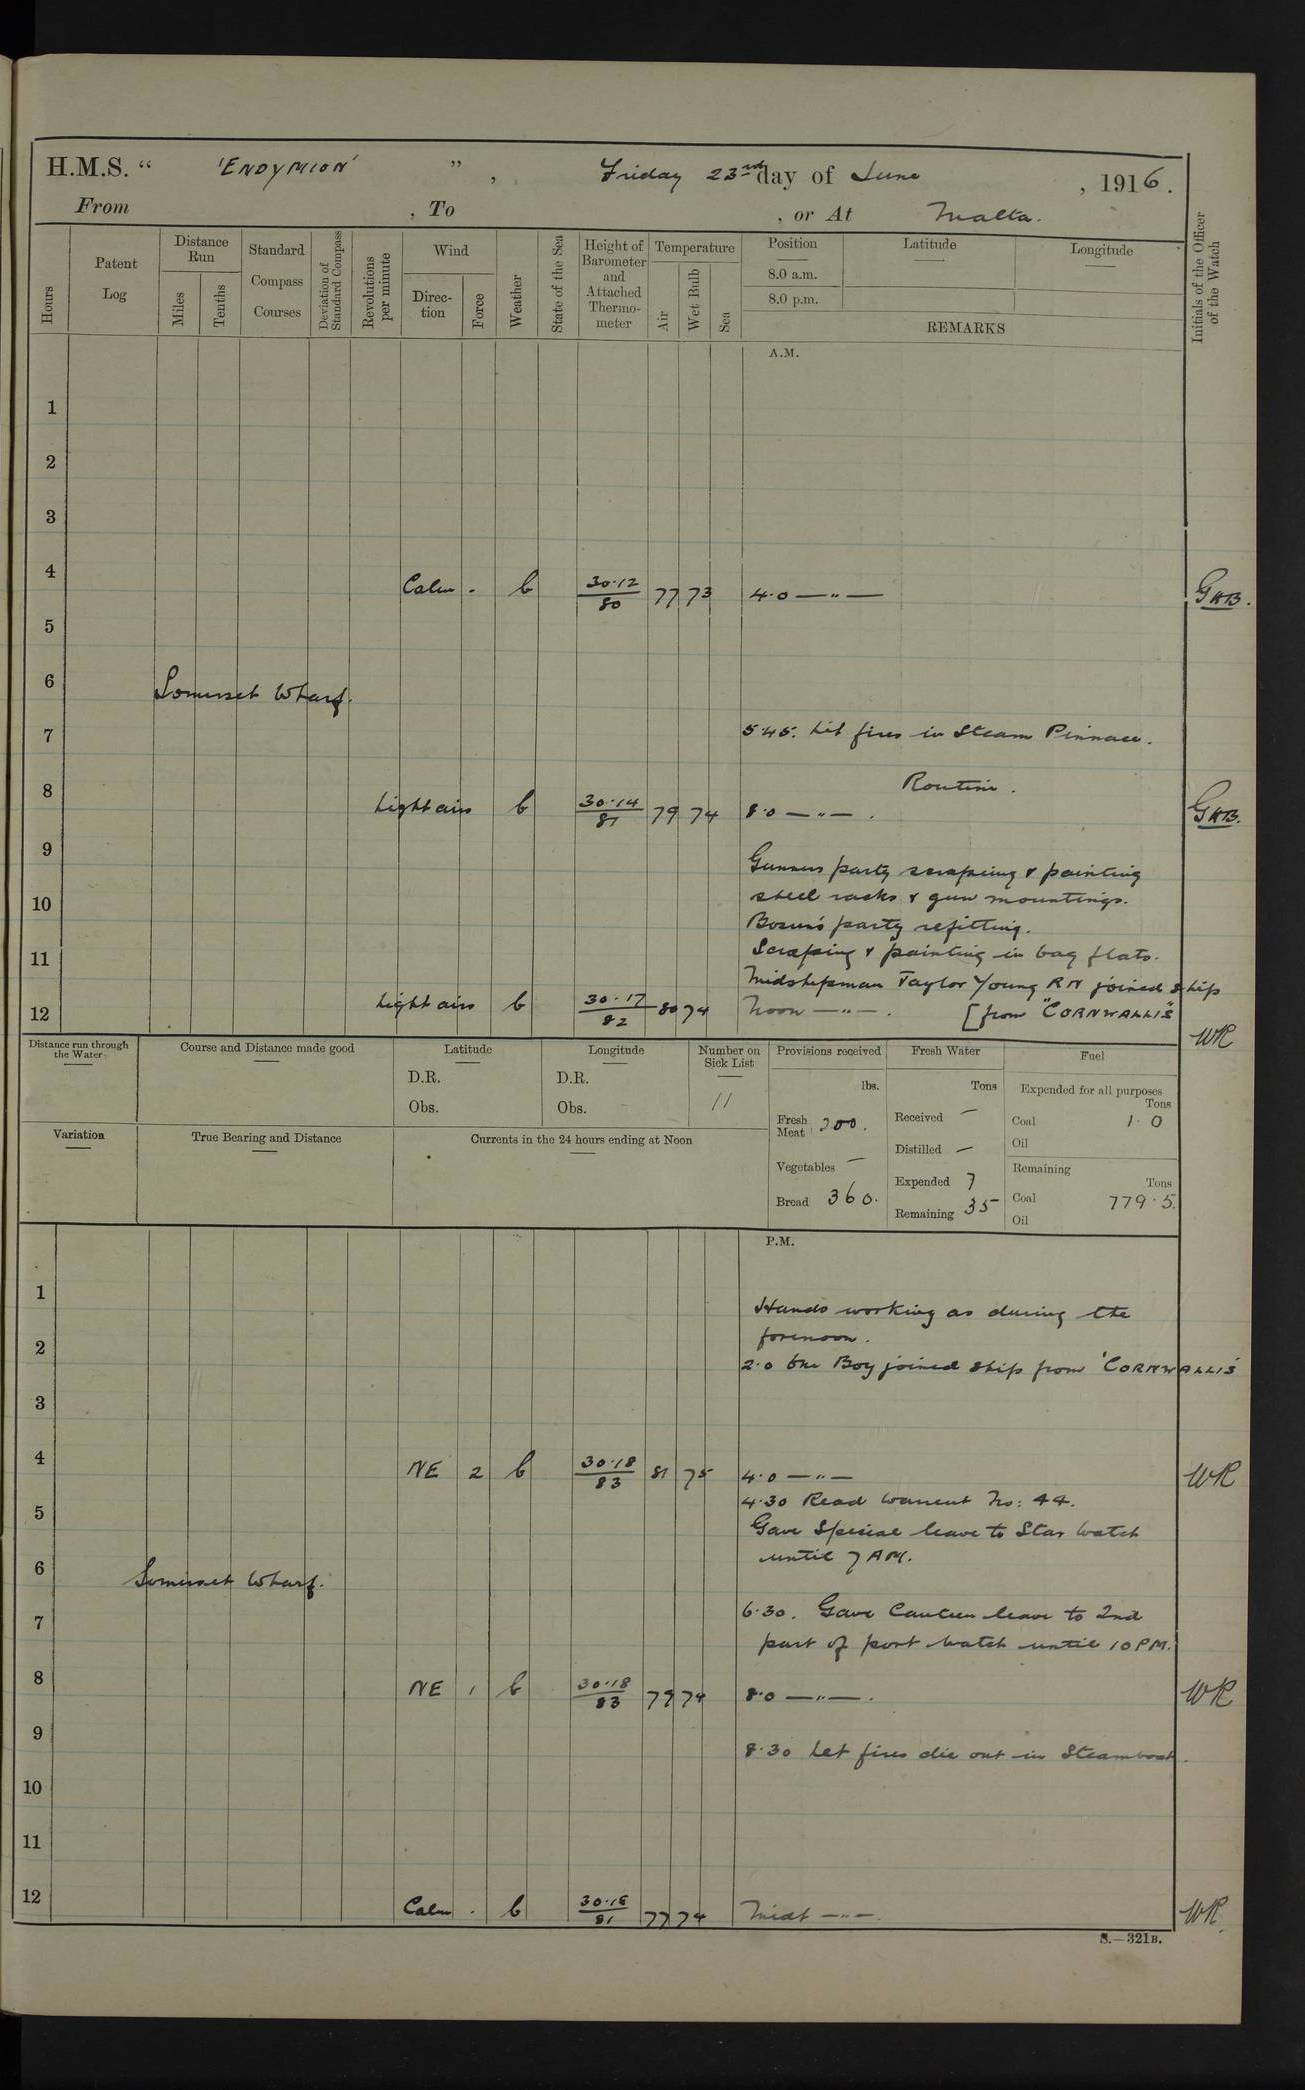 H.M.S. “ 'ENDYMION' ” , Friday 23rd day of June , 1916.
From , To , or At Malta.
Hours
Patent Log
Distance Run
Miles
Tenths
Standard Compass Courses
Deviation of Standard Compass
Revolutions per minute
Wind
Direc-tion
Force
Weather
State of the Sea
Height of Barometer and Attached Thermo-meter
Temperature
Air
Wet Bulb
Sea
Position
8.0 a.m.
8.0 p.m.
Latitude
Longitude
REMARKS
Initials of the Officer of the Watch
A.M.
1
2
3
4 Calm . b 30.12/80 77 73 4.0 — " — GHB.
5
6 Somerset Wharf.
7 5.45. Lit fires in Steam Pinnace.
Routine.
8 Light airs b 30.14/81 79 74 8.0 — " — . GHB.
9 Gunners party scraping & painting
10 steel racks & gun mountings.
Bosun's party refitting.
11 Scraping & painting in bag flats.
Midshipman Taylor Young RN joined ship
12 Light airs b 30.17/82 80 74 Noon — " — . [from "CORNWALLIS" WR
Distance run through the Water
Course and Distance made good
Latitude
D.R.
Obs.
Longitude
D.R.
Obs.
Number on Sick List
11
Provisions received
lbs.
Fresh Meat 200.
Vegetables —
Bread 360.
Fresh Water
Tons
Received —
Distilled —
Expended 7
Remaining 35
Fuel
Expended for all purposes
Tons
Coal 1.0
Oil
Remaining
Tons
Coal 779.5.
Oil
Variation
True Bearing and Distance
Currents in the 24 hours ending at Noon
P.M.
1 Hands working as during the
2 forenoon.
2.0 One Boy joined ship from 'CORNWALLIS'
3
4 NE 2 b 30.18/83 81 75 4.0 — " — WR
4.30 Read Warrent No: 44.
5 Gave Special leave to Star Watch
until 7 AM.
6 Somerset Wharf.
7 6.30. Gave Canteen leave to 2nd
part of port watch until 10 PM.
8 NE 1 b 30.18/83 79 74 8.0 — " — . WR
9 8.30 Let fires die out in Steamboat.
10
11
12 Calm . b 30.18/81 77 74 Midt — " — . WR.
S.—321B.